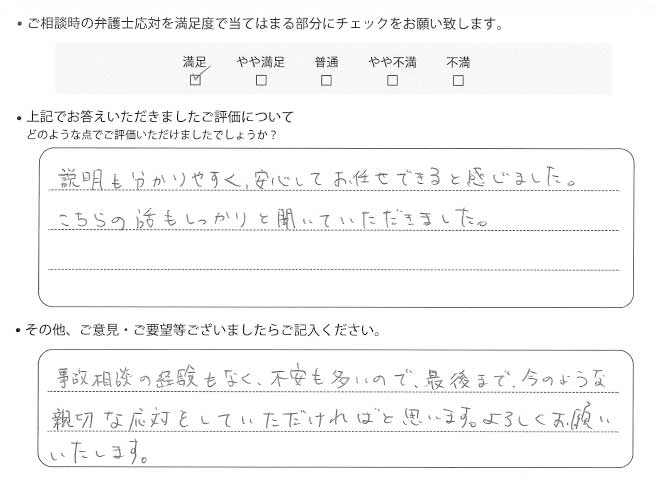 • ご相談時の弁護士応対を満足度で当てはまる部分にチェックをお願い致します。
満足 やや満足 普通 やや不満 不満
☑ ☐ ☐ ☐ ☐
• 上記でお答えいただきましたご評価について
どのような点でご評価いただけましたでしょうか？
説明も分かりやすく、安心してお任せできると感じました。
こちらの話もしっかりと聞いていただきました。
• その他、ご意見・ご要望等ございましたらご記入ください。
事故相談の経験もなく、不安も多いので、最後まで、今のような
親切な応対をしていただければと思います。よろしくお願い
いたします。